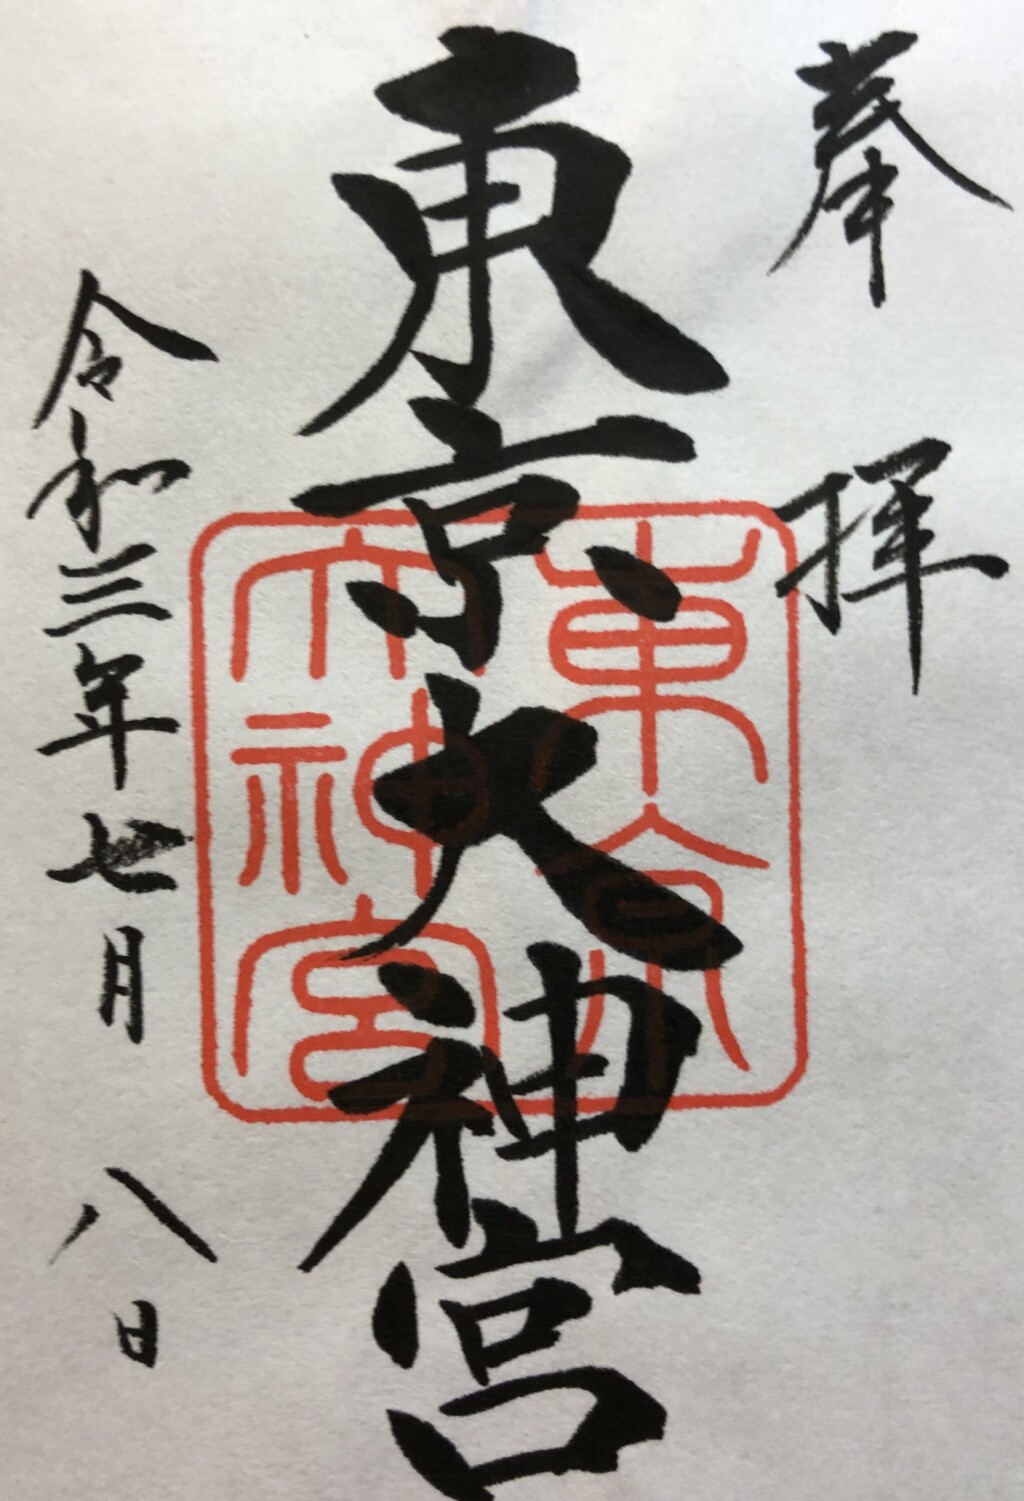 奉拝
東京大神宮
東京
大神宮
令和三年七月八日